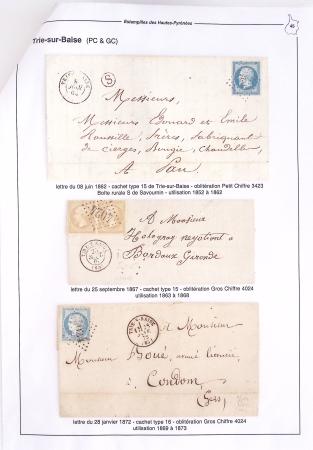 Estampilles des Hautes-Pyrénées
Trie-sur-Baise (PC & GC)
S
Messieurs,
Messieurs Edouard et Emile
Roussille, Frères, Fabriquant
de cierges, Bougie, Chandelle,
A Pau
lettre du 08 juin 1862 - cachet type 15 de Trie-sur-Baise - oblitération Petit Chiffre 3423
Boîte rurale S de Savournin - utilisation 1852 à 1862
A Monsieur
négotiant à
Bordaux Gironde
lettre du 25 septembre 1867 - cachet type 15 - oblitération Gros Chiffre 4024
utilisation 1863 à 1868
A Monsieur
Monsieur Boué,
Condom,
Gers,
lettre du 28 janvier 1872 - cachet type 16 - oblitération Gros Chiffre 4024
utilisation 1869 à 1873